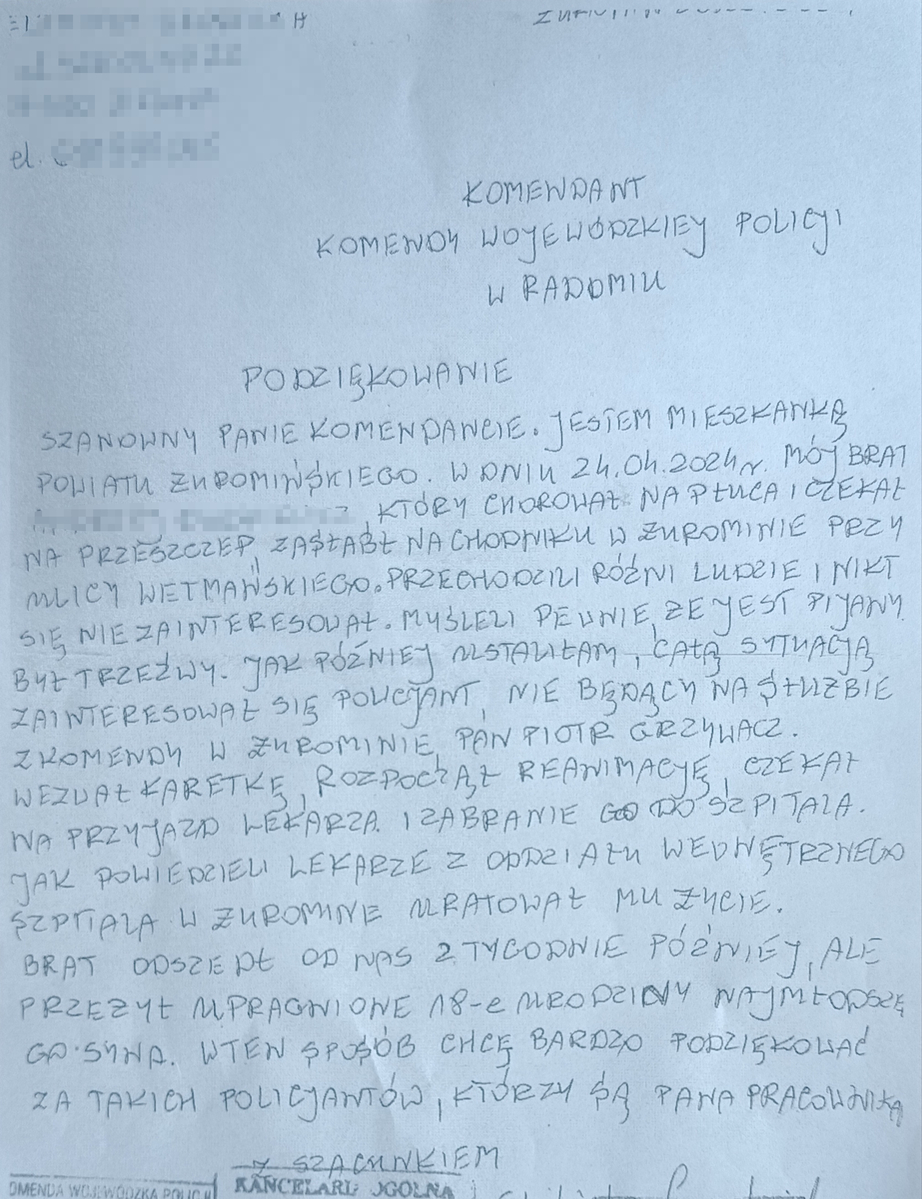 el.
KOMENDANT
KOMENDY WOJEWÓDZKIEJ POLICJI
W RADOMIU
PODZIĘKOWANIE
SZANOWNY PANIE KOMENDANCIE. JESTEM MIESZKANKĄ
POWIATU ŻUROMIŃSKIEGO. W DNIU 24.04.2024 r. MÓJ BRAT
KTÓRY CHOROWAŁ NA PŁUCA I CZEKAŁ
NA PRZESZCZEP, ZASŁABŁ NA CHODNIKU W ŻUROMINIE PRZY
ULICY WETMAŃSKIEGO. PRZECHODZILI RÓŻNI LUDZIE I NIKT
SIĘ NIE ZAINTERESOWAŁ. MYŚLELI PEWNIE, ŻE JEST PIJANY.
BYŁ TRZEŹWY. JAK PÓŹNIEJ USTALIŁAM, CAŁĄ SYTUACJĄ
ZAINTERESOWAŁ SIĘ POLICJANT, NIE BĘDĄCY NA SŁUŻBIE
Z KOMENDY W ŻUROMINIE, PAN PIOTR GRZYWACZ.
WEZWAŁ KARETKĘ, ROZPOCZĄŁ REANIMACJĘ, CZEKAŁ
NA PRZYJAZD LEKARZA I ZABRANIE GO DO SZPITALA.
JAK POWIEDZIELI LEKARZE Z ODDZIAŁU WEWNĘTRZNEGO
SZPITALA W ŻUROMINE URATOWAŁ MU ŻYCIE.
BRAT ODSZEDŁ OD NAS 2 TYGODNIE PÓŹNIEJ, ALE
PRZEŻYŁ UPRAGNIONE 18-e URODZINY NAJMŁODSZE
GO SYNA. W TEN SPOSÓB CHCĘ BARDZO PODZIĘKOWAĆ
ZA TAKICH POLICJANTÓW, KTÓRZY SĄ PANA PRACOWNIKĄ
Z SZACUNKIEM
OMENDA WOJEWÓDZKA POLICJI
KANCELARI OGÓLNA